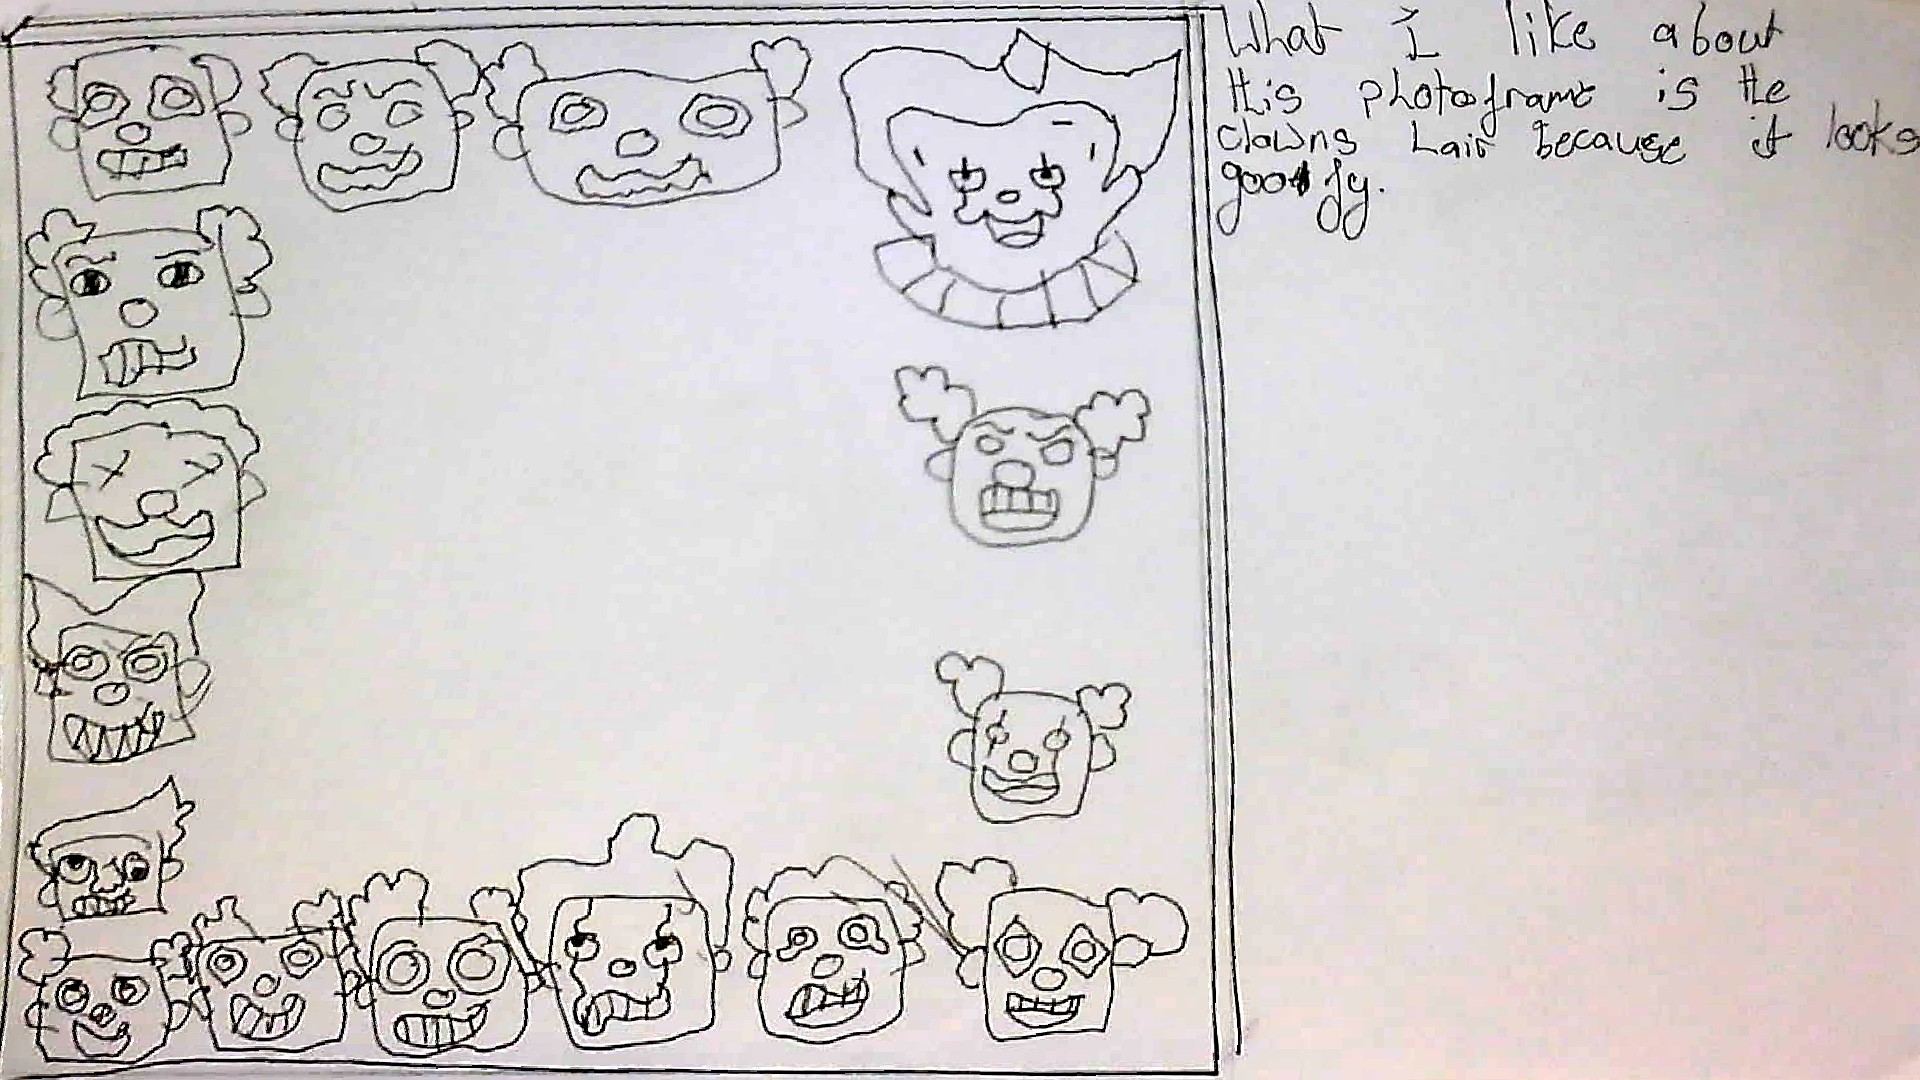 What I like about
this photoframe is the
clowns hair because it looks
goofy.